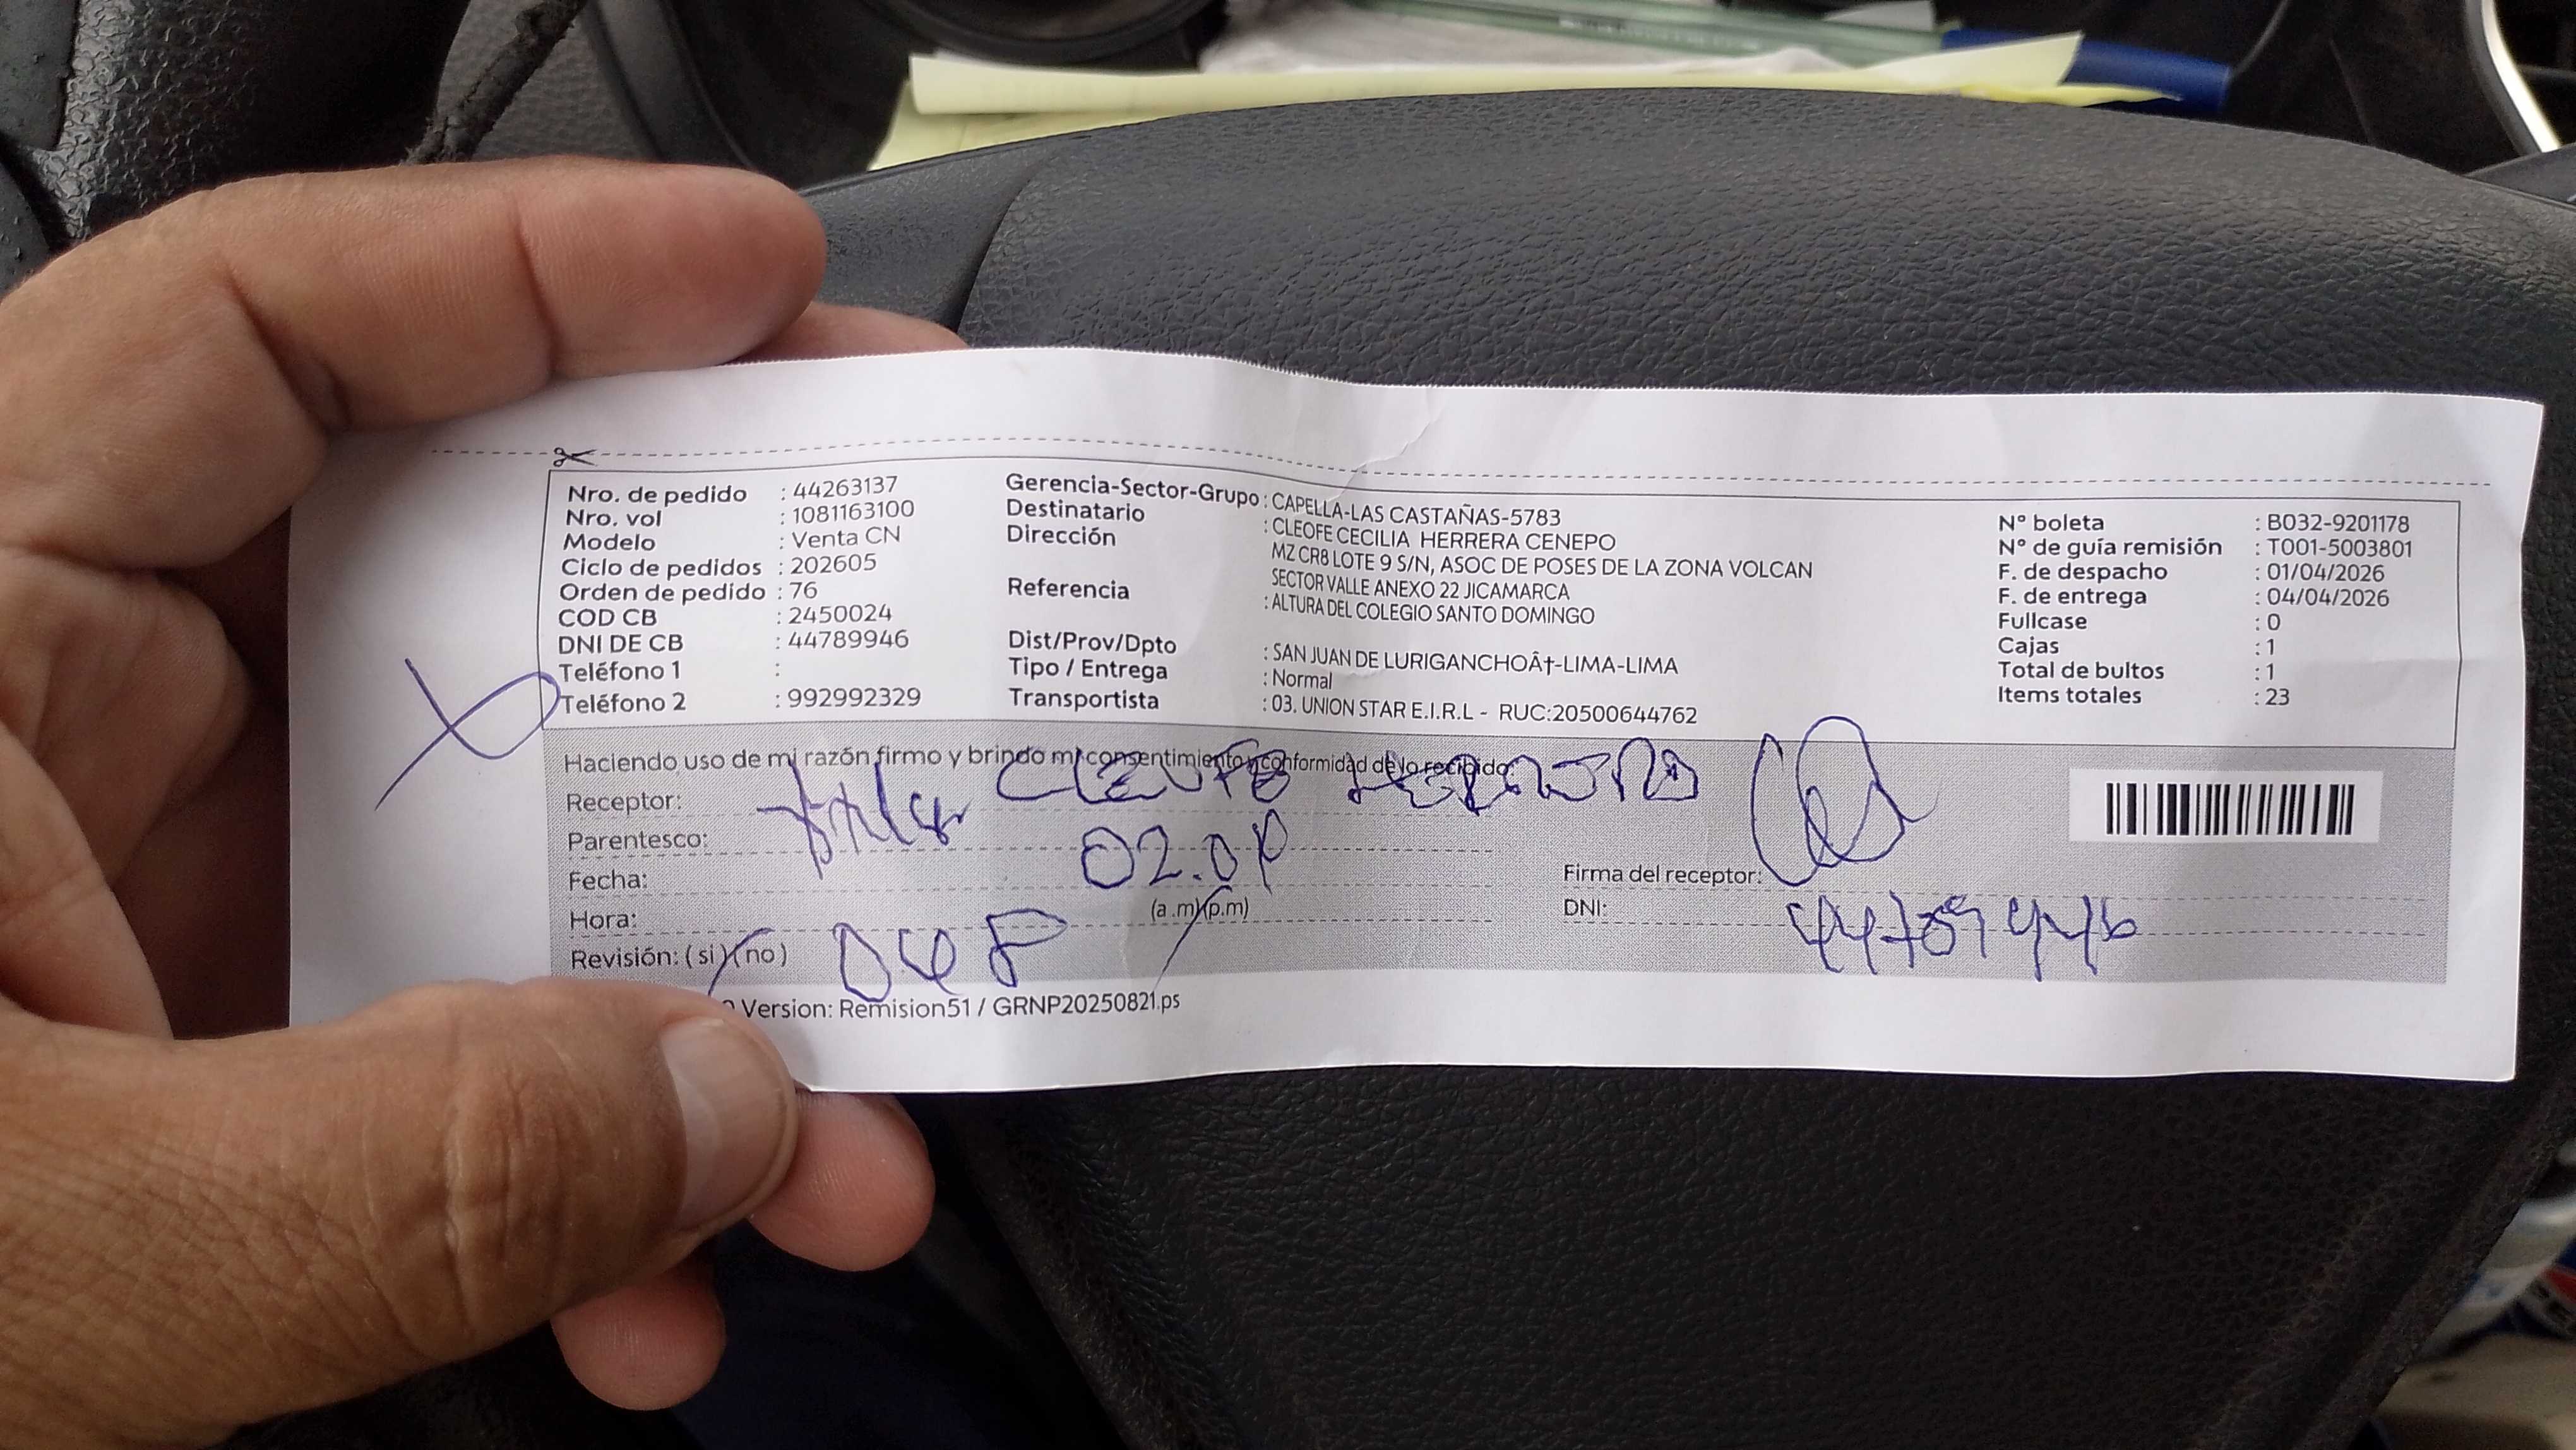 Nro. de pedido : 44263137
Nro. vol : 1081163100
Modelo : Venta CN
Ciclo de pedidos : 202605
Orden de pedido : 76
COD CB : 2450024
DNI DE CB : 44789946
Teléfono 1 :
Teléfono 2 : 992992329
Gerencia-Sector-Grupo : CAPELLA-LAS CASTAÑAS-5783
Destinatario : CLEOFE CECILIA HERRERA CENEPO
Dirección MZ CR8 LOTE 9 S/N, ASOC DE POSES DE LA ZONA VOLCAN
SECTOR VALLE ANEXO 22 JICAMARCA
Referencia : ALTURA DEL COLEGIO SANTO DOMINGO
Dist/Prov/Dpto : SAN JUAN DE LURIGANCHOÂ†-LIMA-LIMA
Tipo / Entrega : Normal
Transportista : 03. UNION STAR E.I.R.L - RUC:20500644762
N° boleta : B032-9201178
N° de guía remisión : T001-5003801
F. de despacho : 01/04/2026
F. de entrega : 04/04/2026
Fullcase : 0
Cajas : 1
Total de bultos : 1
Items totales : 23
Haciendo uso de mi razón firmo y brindo mi consentimiento y conformidad de lo recibido.
Receptor:
Parentesco:
Fecha:
Hora: (a.m)(p.m)
Revisión: ( si ) (no )
Firma del receptor:
DNI:
Version: Remision51 / GRNP20250821.ps